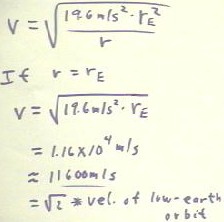 V = √(19.6 m/s² · r_E² / r)
If r = r_E
V = √(19.6 m/s² · r_E)
= 1.16 X 10⁴ m/s
≈ 11600 m/s
= √2 * vel. of low-earth
orbit